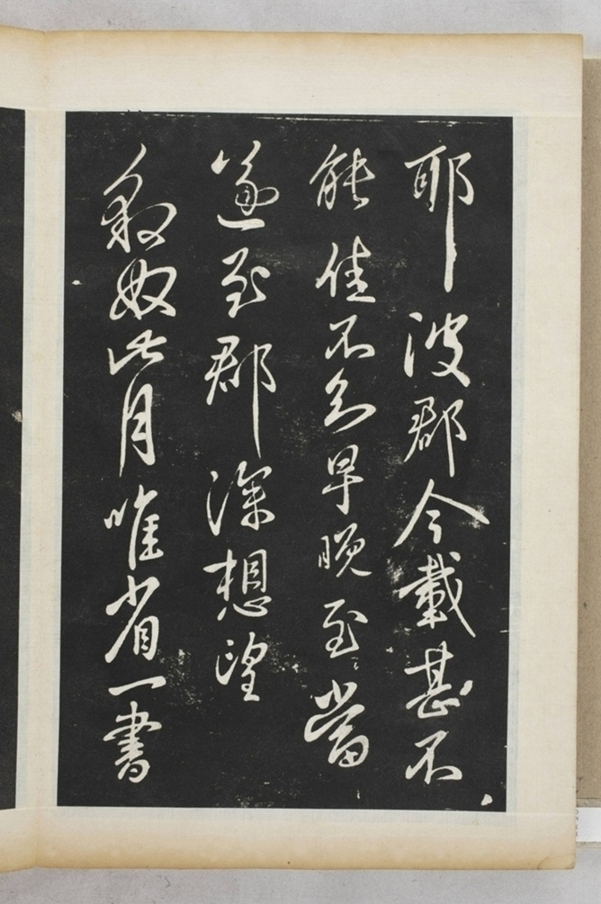 耶彼郡今載甚不
能佳不知早晚至當
遂至郡深想望
豹奴此月唯省一書